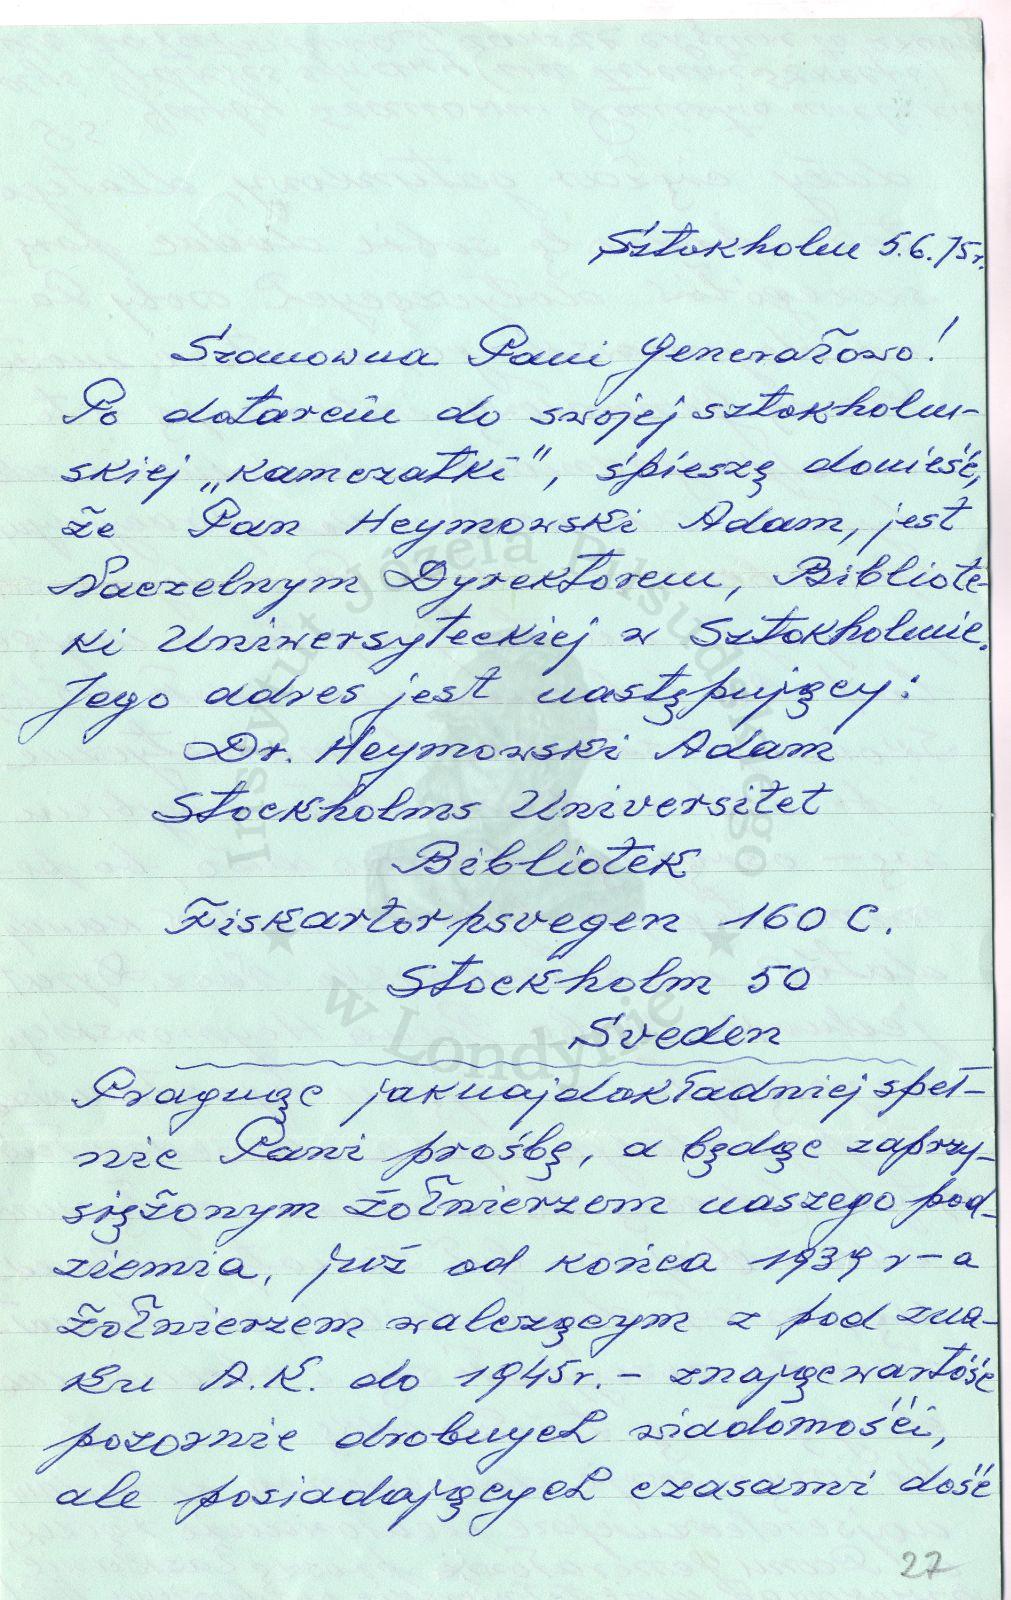 Sztokholm 5.6.75r.
Szanowna Pani Generałowo!
Po dotarciu do swojej sztokholm-
skiej „kamczatki”, śpieszę donieść,
że Pan Heymowski Adam, jest
Naczelnym Dyrektorem, Bibliote-
ki Uniwersyteckiej w Sztokholmie.
Jego addres jest następujący:
Dr. Heymowski Adam
Stockholms Universitet
Bibliotek
Fiskartorpsvegen 160 C.
Stockholm 50
Sveden
Pragnąc jaknajdokładniej speł-
nić Pani prośbę, a będąc zaprzy-
siężonym żołnierzem naszego pod-
ziemia, już od końca 1939 r – a
żołnierzem walczącym z pod zna-
ku A.K. do 1945r. – znając wartość
pozornie drobnych wiadomości,
ale posiadających czasami dość
27
Instytut Józefa Piłsudskiego
w Londynie